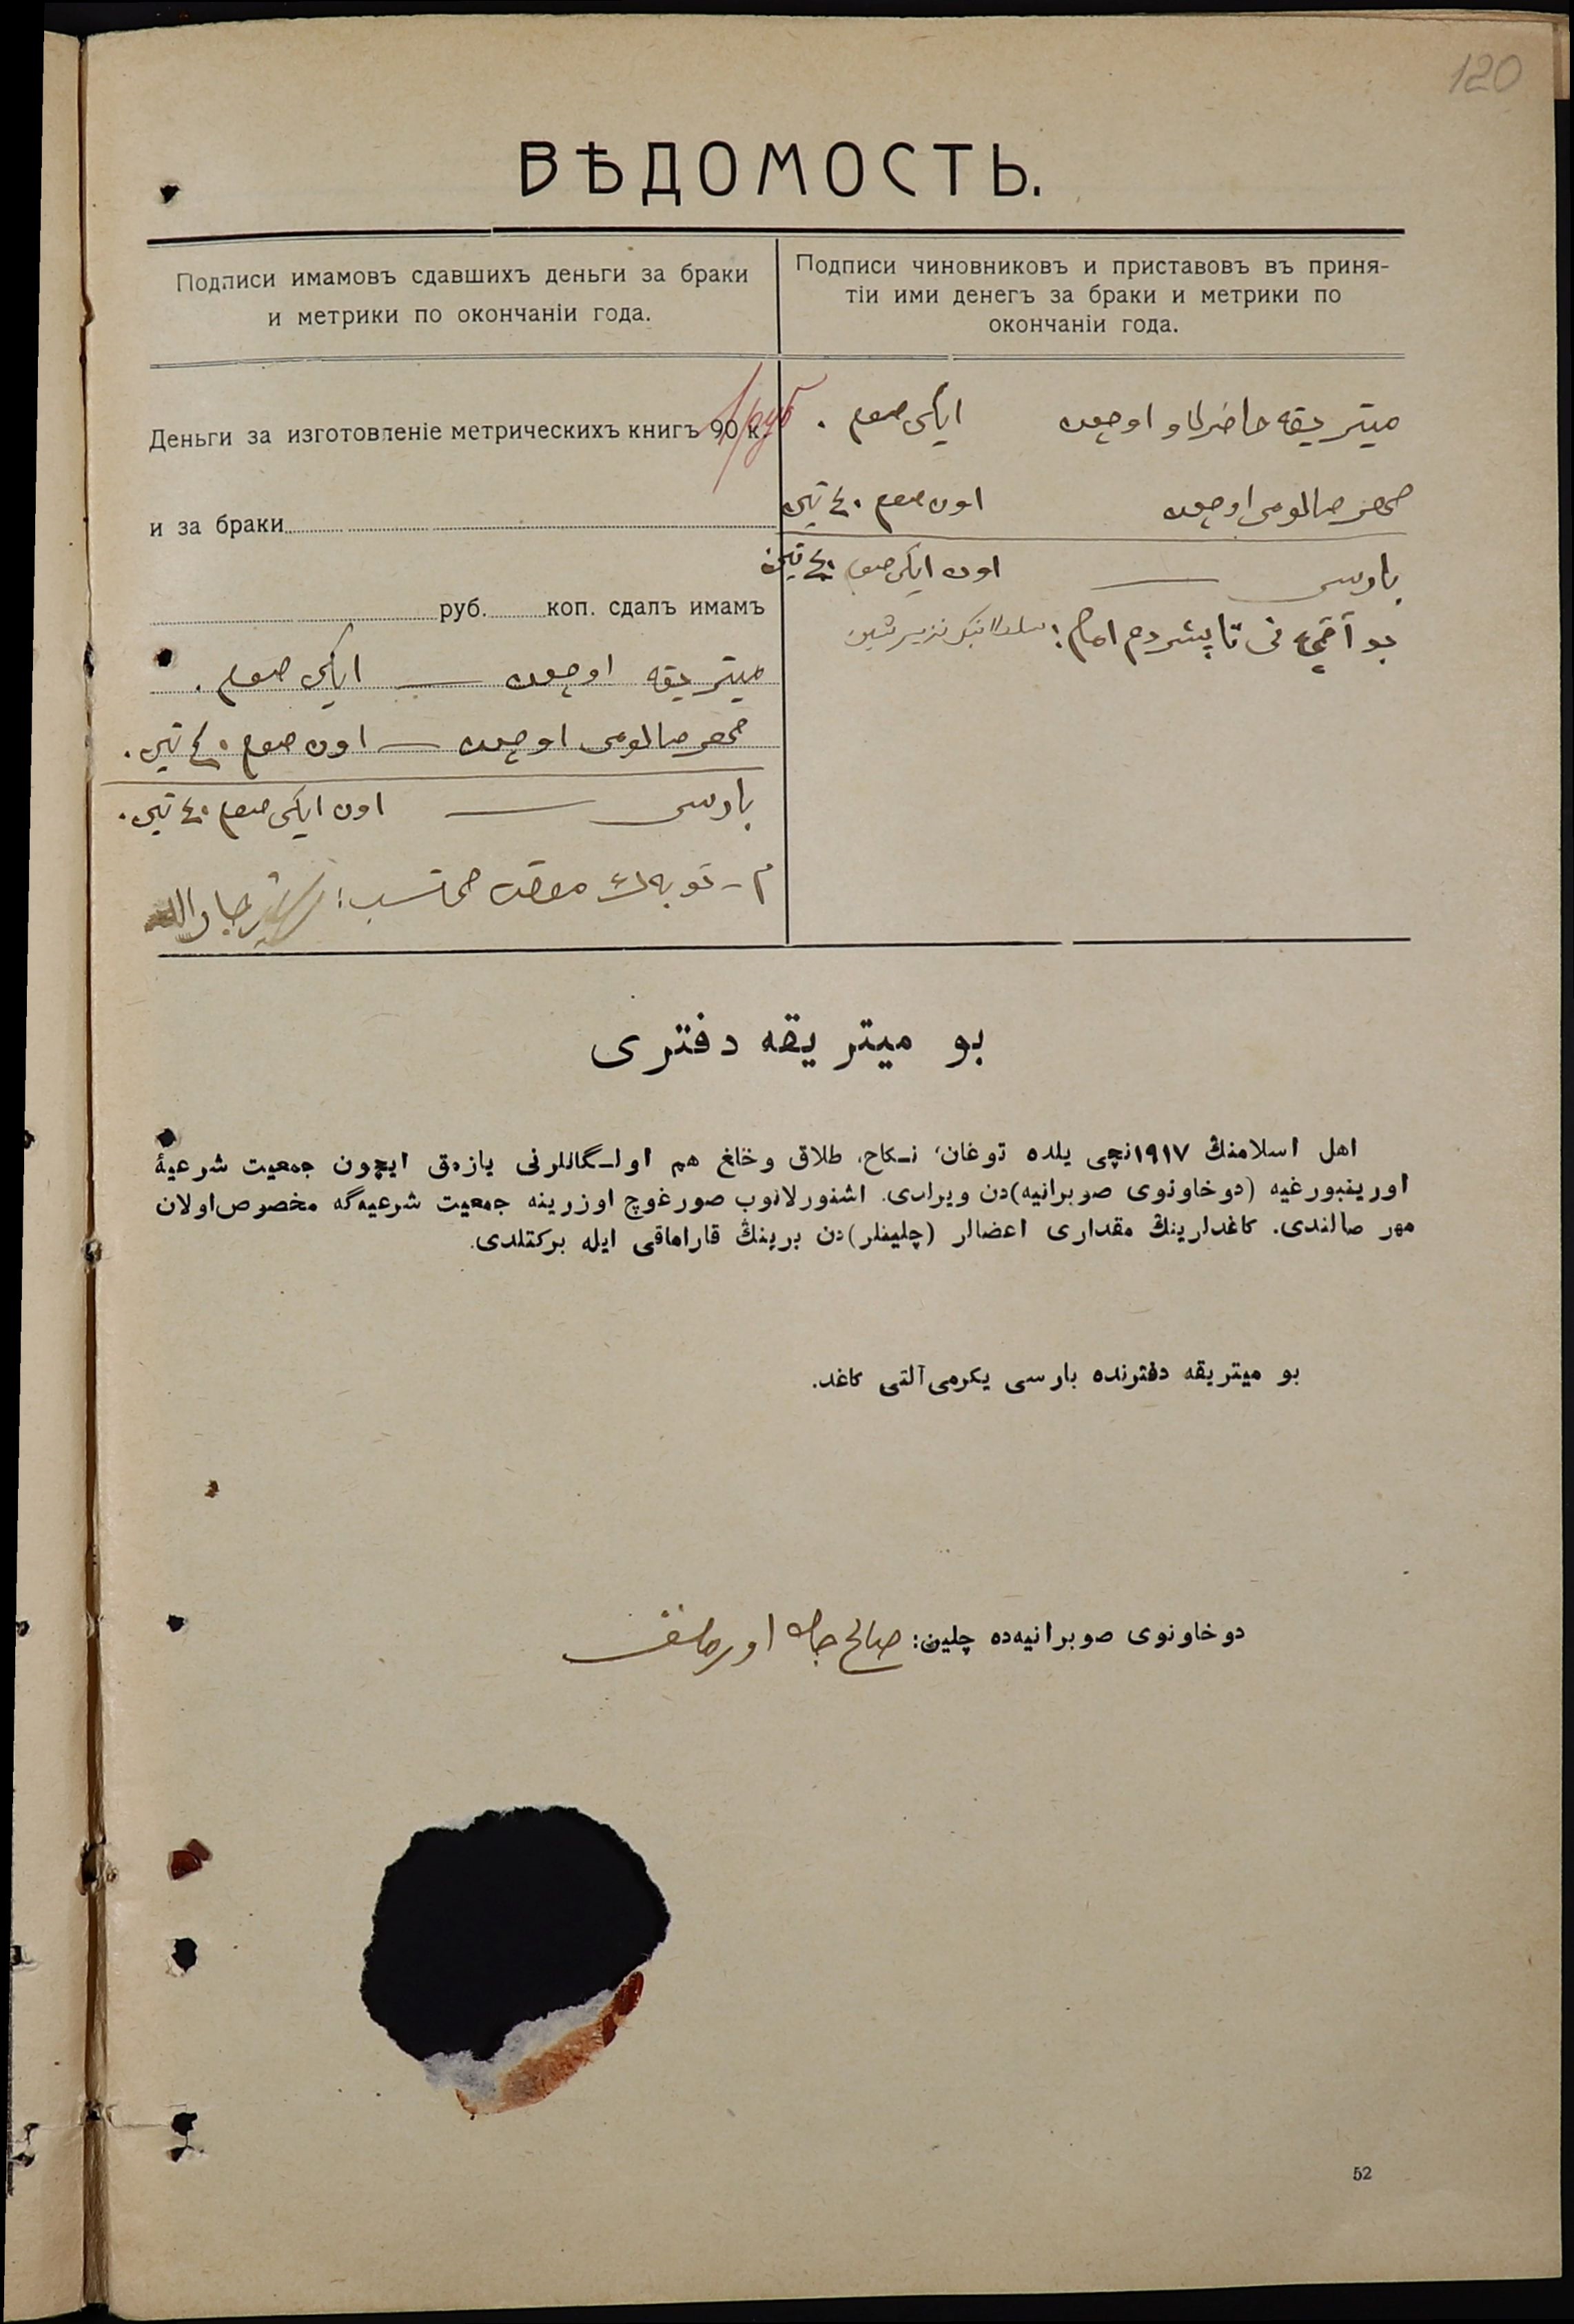 120
ВѢДОМОСТЬ.
Подписи имамовъ сдавшихъ деньги за браки
и метрики по окончаніи года.
Подписи чиновниковъ и приставовъ въ приня-
тіи ими денегъ за браки и метрики по
окончаніи года.
Деньги за изготовленіе метрическихъ книгъ 90 к.
1 руб
и за браки
руб. коп. сдалъ имамъ
ميتريقه اوچون — ايكى صوم.
مهر صالومى اوچون — اون صوم ٤٠ تين.
بارسى — اون ايكى صوم ٤٠ تين.
محتسب:
ميتريقه حاضرلاو اوچون ايكى صوم.
مهر صالومى اوچون اون صوم ٤٠ تين
بارسى — اون ايكى صوم ٤٠ تين
بو آقچه نى تاپشردم امام:
بو ميتريقه دفترى
اهل اسلامنڭ ١٩١٧نچى يلده توغان، نـكاح، طلاق وخلع هم اولـگانلرنى يازمق ايچون جمعيت شرعيۀ
اورينبورغيه (دوخاونوى صوبرانيه)دن ويرلدى. اشنورلانوب صورغوچ اوزرينه جمعيت شرعيه‌گه مخصوص اولان
مهر صالندى. كاغدلرينڭ مقدارى اعضالر (چلينلر)دن برينڭ قاراماقى ايله بركتلدى.
بو ميتريقه دفترنده بارسى يكرمى آلتى كاغد.
دوخاونوى صوبرانيه‌ده چلين: صالح جان اورمانف
52